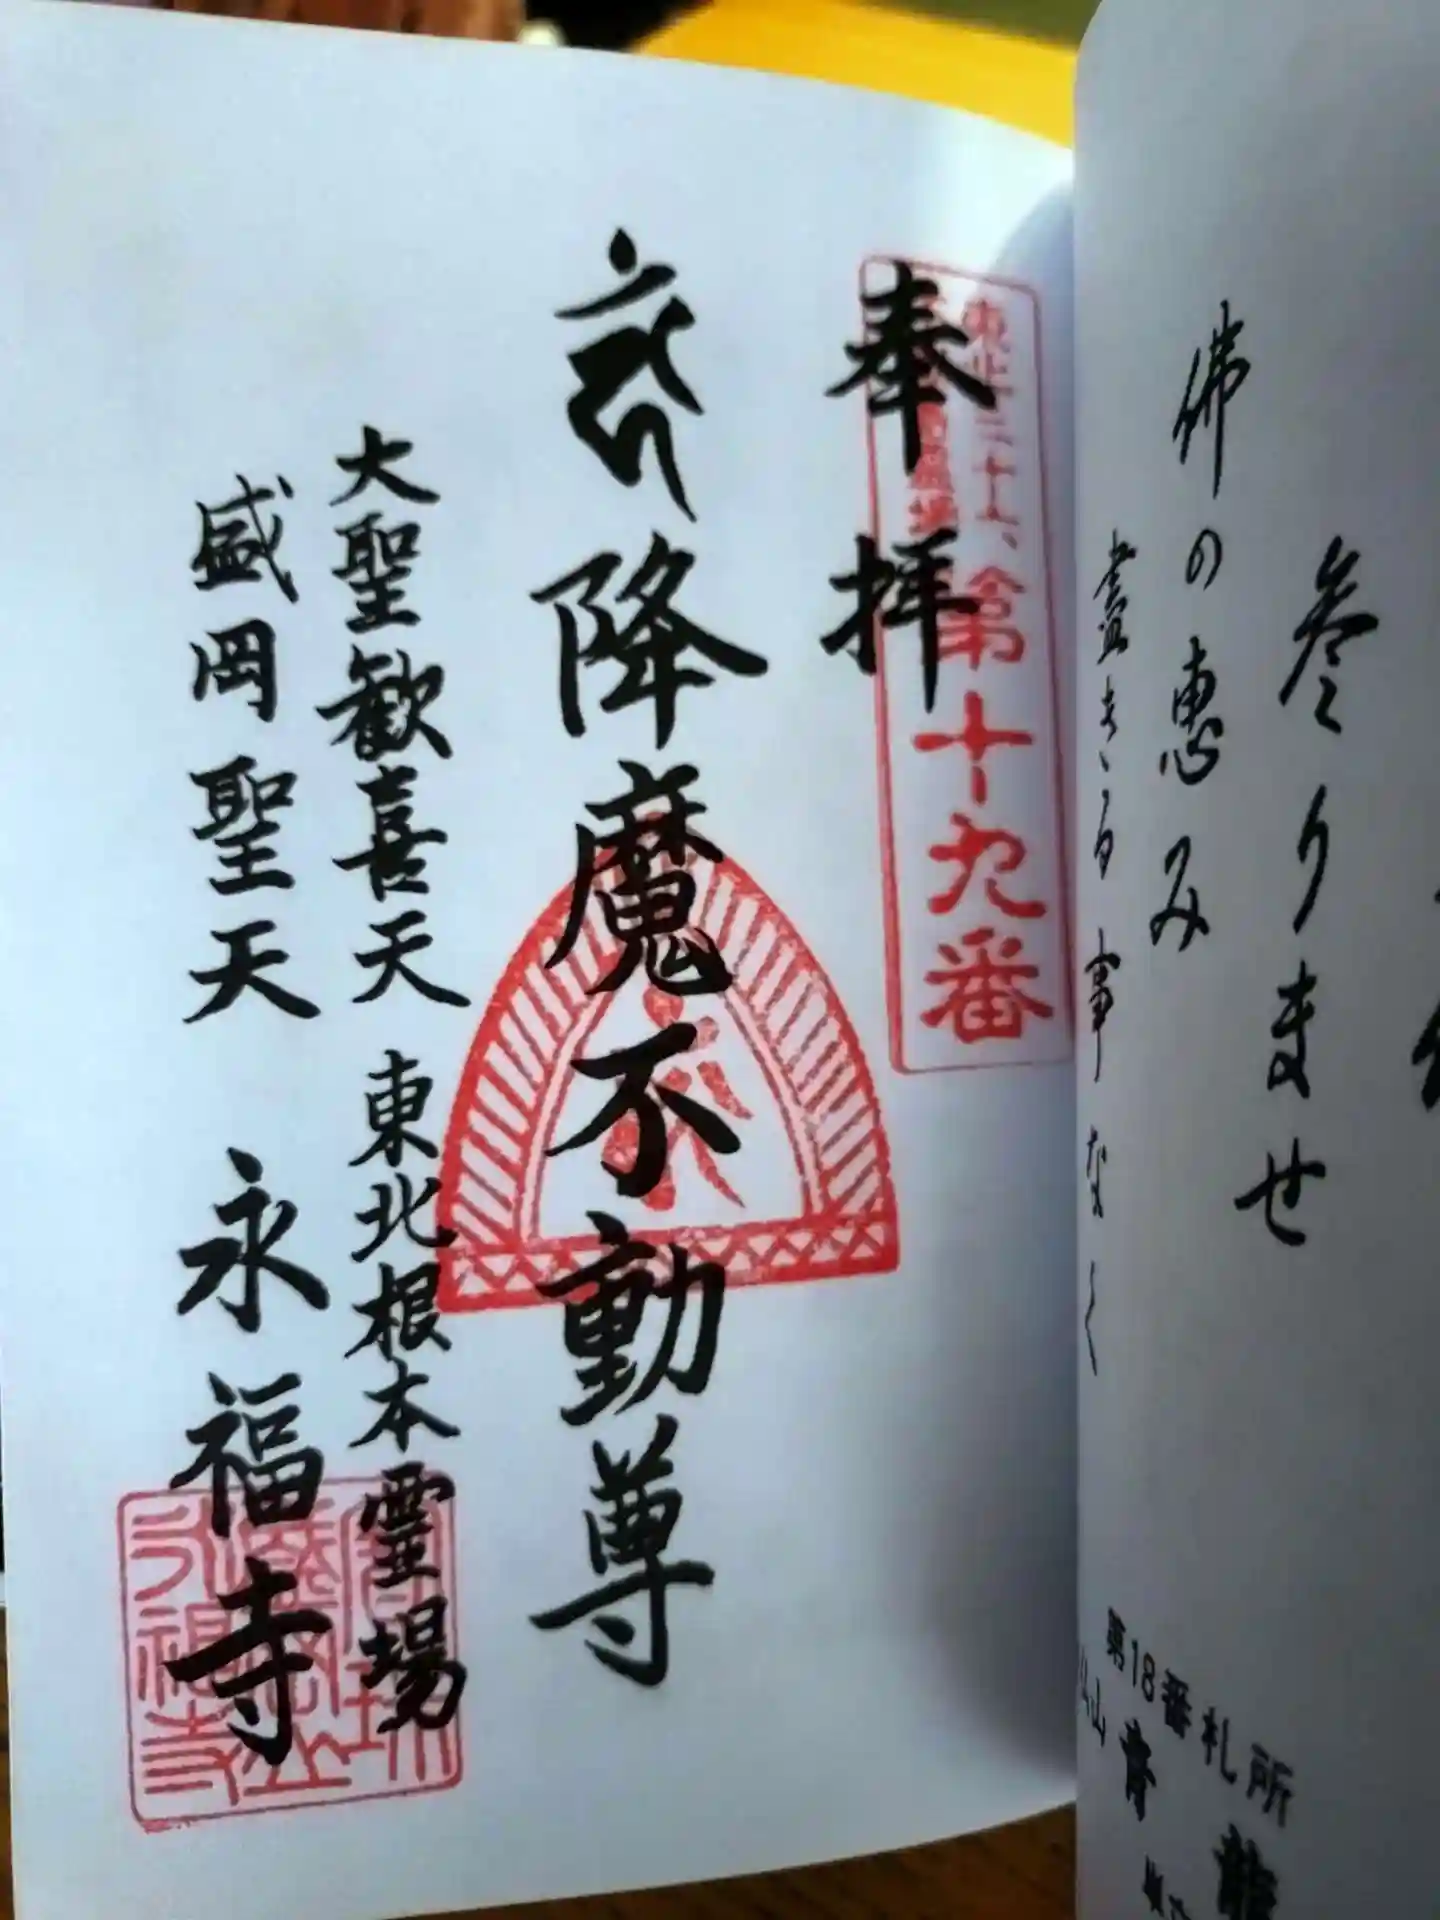 佛の惠み
盡きる事なく
参りませ
第18番札所
奉拝
東北三十六
不動尊霊場
第十九番
降魔不動尊
大聖歓喜天 東北根本霊場
盛岡聖天 永福寺
永福寺